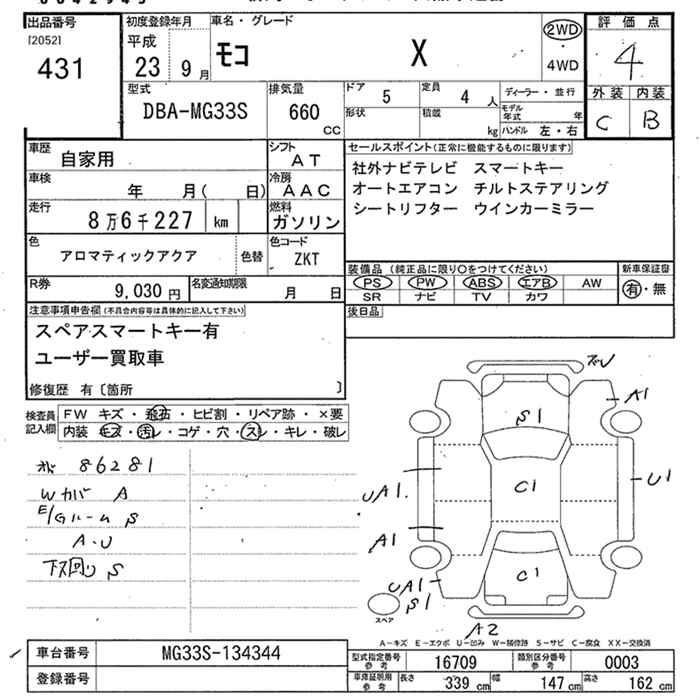 出品番号
[2052]
431
初度登録年月
平成
23 9月
車名・グレード
モコ X
2WD
・
4WD
評価点
4
外装 内装
C B
型式
DBA-MG33S
排気量
660
CC
ドア 5
定員 4 人
形状
積載 kg
ディーラー・並行
モデル年式 年
ハンドル 左・右
車歴 自家用
シフト AT
車検 年 月( 日)
冷房 AAC
走行 8万6千227 km
燃料 ガソリン
色 アロマティックアクア 色替
色コード ZKT
R券 9,030円
名変通知期限 月 日
セールスポイント(正常に機能するものに限ります)
社外ナビテレビ スマートキー
オートエアコン チルトステアリング
シートリフター ウインカーミラー
装備品(純正品に限り○をつけてください)
PS PW ABS エアB AW
SR ナビ TV カワ
新車保証書
有・無
後日品
注意事項申告欄(不具合内容等は具体的に記入して下さい)
スペアスマートキー有
ユーザー買取車
修復歴 有〔箇所 〕
検査員記入欄
FW キズ・飛石・ヒビ割・リペア跡・×要
内装 キズ・汚レ・コゲ・穴・スレ・キレ・破レ
86281
Wカバ A
E/Gルーム S
A・U
下回り S
A1
S1
UA1
C1
U1
A1
UA1
S1
C1
A2
スペア
A-キズ E-エクボ U-凹み W-補修跡 S-サビ C-腐食 XX-交換済
車台番号 MG33S-134344
登録番号
型式指定番号参考 16709
類別区分番号参考 0003
車庫証明用参考 長さ 339cm 幅 147cm 高さ 162cm